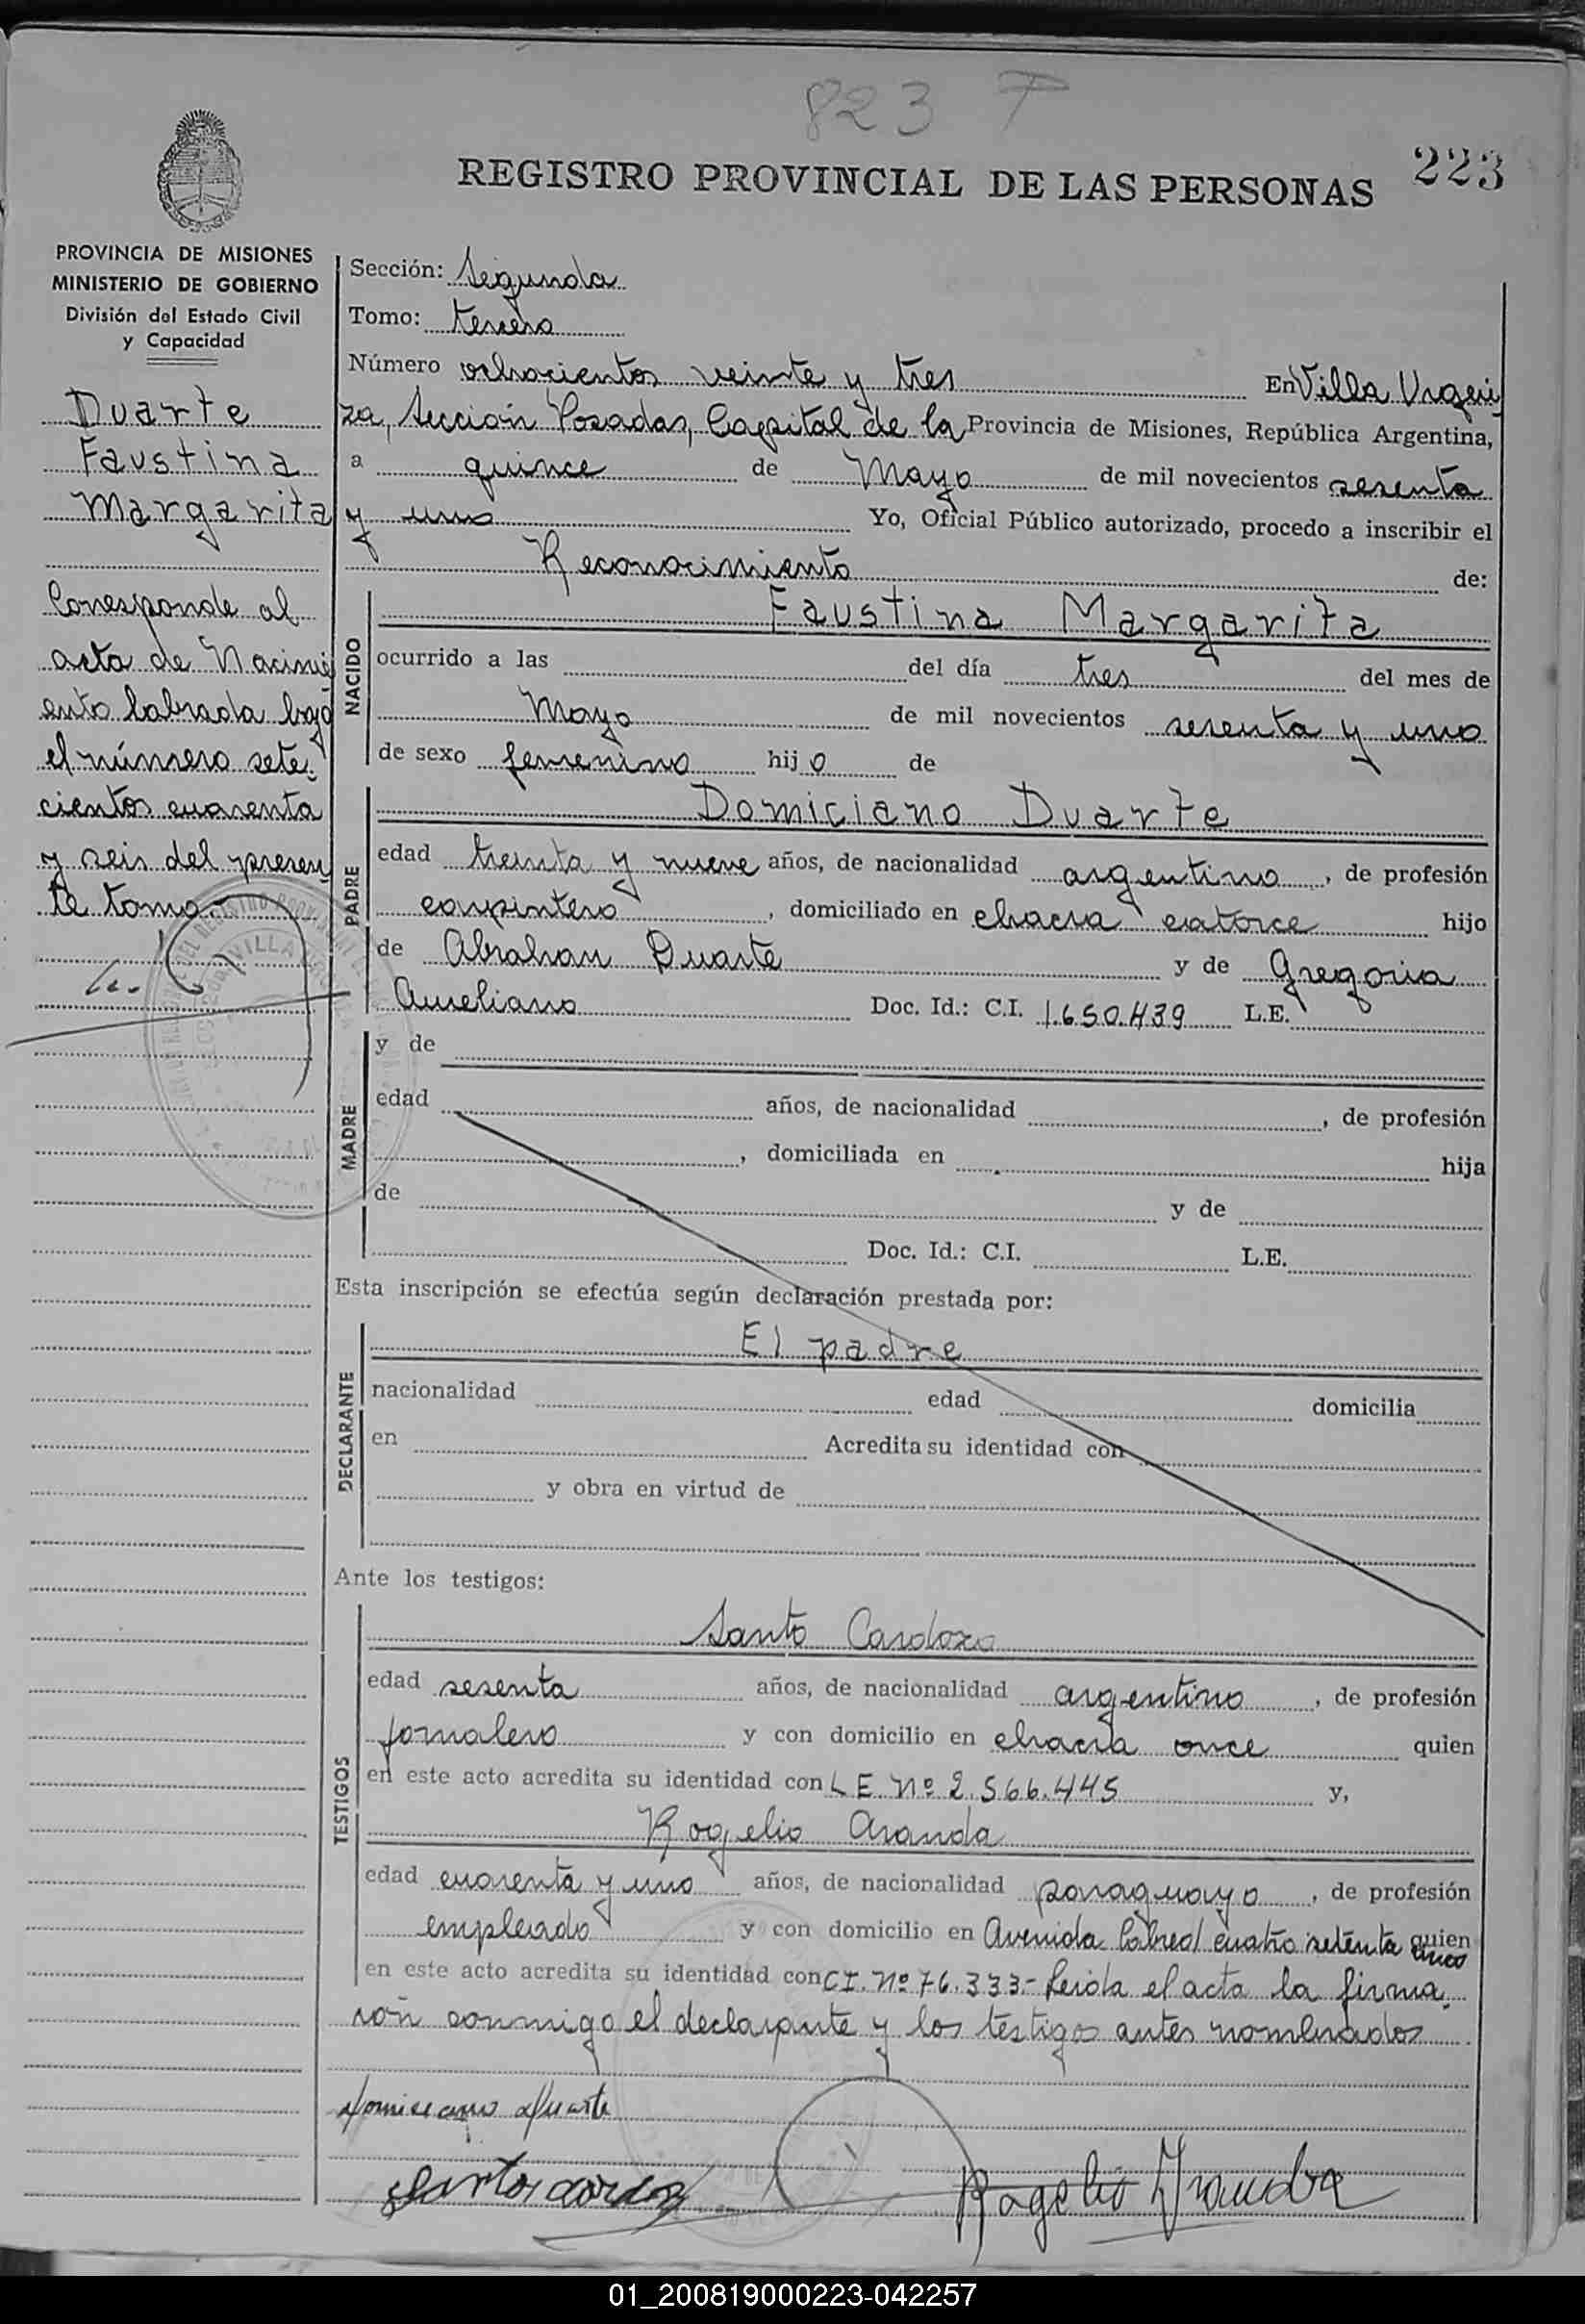 823 T
223
REGISTRO PROVINCIAL DE LAS PERSONAS
PROVINCIA DE MISIONES
MINISTERIO DE GOBIERNO
División del Estado Civil
y Capacidad
Duarte
Faustina
Margarita
Corresponde al
acta de Nacimi
ento labrada bajo
el número sete-
cientos cuarenta
y seis del presen
te tomo.-
Sección: Segunda
Tomo: tercero
Número ochocientos veinte y tres En Villa Urqui
za, Sección Posadas, Capital de la Provincia de Misiones, República Argentina,
a quince de Mayo de mil novecientos sesenta
y uno Yo, Oficial Público autorizado, procedo a inscribir el
Reconocimiento de:
NACIDO
Faustina Margarita
ocurrido a las del día tres del mes de
Mayo de mil novecientos sesenta y uno
de sexo femenino hij o de
PADRE
Domiciano Duarte
edad treinta y nueve años, de nacionalidad argentino, de profesión
carpintero, domiciliado en chacra catorce hijo
de Abrahan Duarte y de Gregoria
Aureliano Doc. Id.: C.I. 1.650.439 L.E.
MADRE
y de
edad años, de nacionalidad , de profesión
, domiciliada en hija
de y de
Doc. Id.: C.I. L.E.
Esta inscripción se efectúa según declaración prestada por:
DECLARANTE
El padre
nacionalidad edad domicilia
en Acredita su identidad con
y obra en virtud de
Ante los testigos:
TESTIGOS
Santo Cardozo
edad sesenta años, de nacionalidad argentino, de profesión
jornalero y con domicilio en chacra once quien
en este acto acredita su identidad con L E. Nº 2.566.445 y,
Rogelio Aranda
edad cuarenta y uno años, de nacionalidad paraguayo, de profesión
empleado y con domicilio en Avenida Cabred cuatro setenta quien
cinco
en este acto acredita su identidad con C.I. Nº 76.333.- Leida el acta la firma.
ron conmigo el declarante y los testigos antes nombrados
Domiciano Duarte
Santos Cardozo
Rogelio Aranda
01_200819000223-042257